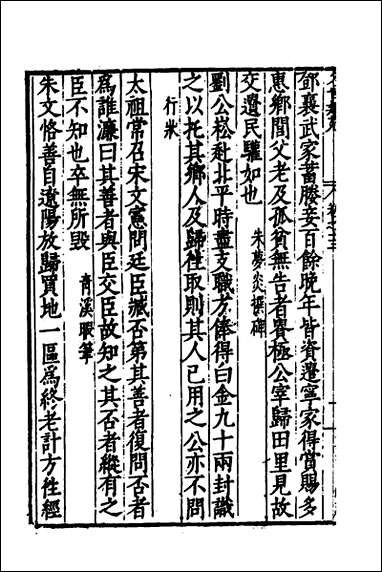 鄧襄武家蓄媵妾百餘晚年皆資遣寧家得賞賜多
惠鄉閭父老及孤貧無告者眷極公宰歸田里見故
交遣民驩如也　朱夢炎撰碑
劉公崧赴北平時盡支職方俸得白金九十兩封識
之以托其鄉人及歸徃取則其人已用之公亦不問
行狀
太祖常召宋文憲問廷臣臧否第其善者復問否者
爲誰濂曰其善者與臣交臣故知之其否者縱有之
臣不知也卒無所毀　青溪暇筆
朱文恪善自遼陽放歸買地一區爲終老計方徃經